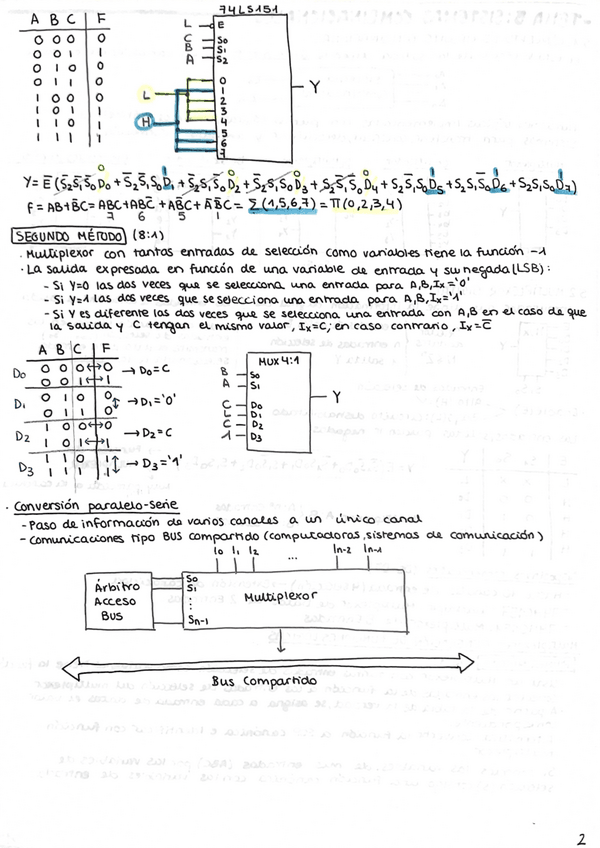 74LS151
A B C F
0 0 0 0
0 0 1 1
0 1 0 0
0 1 1 0
1 0 0 0
1 0 1 1
1 1 0 1
1 1 1 1
L E
C S0
B S1
A S2
L
H
0
1
2
3
4
5
6
7
Y
0 1 0 0 0 1 1 1
Y = E(S̄2S̄1S̄0D0 + S̄2S̄1S0D1 + S̄2S1S̄0D2 + S̄2S1S0D3 + S2S̄1S̄0D4 + S2S̄1S0D5 + S2S1S̄0D6 + S2S1S0D7)
F = AB + B̄C = ABC + ABC̄ + AB̄C + ĀB̄C = Σ(1,5,6,7) = π(0,2,3,4)
7 6 5 1
SEGUNDO MÉTODO (8:1)
· Multiplexor con tantas entradas de selección como variables tiene la función -1
· La salida expresada en función de una variable de entrada y su negada (LSB):
- Si Y=0 las dos veces que se selecciona una entrada para A,B, Ix='0'
- Si Y=1 las dos veces que se selecciona una entrada para A,B, Ix='1'
- Si Y es diferente las dos veces que se selecciona una entrada con A,B en el caso de que
la salida y C tengan el mismo valor, Ix=C; en caso contrario, Ix=C̄
A B C F
D0 0 0 0 ↔ 0 → D0=C
0 0 1 ↔ 1
D1 0 1 0 0 → D1='0'
0 1 1 0
D2 1 0 0 ↔ 0 → D2=C
1 0 1 ↔ 1
D3 1 1 0 1 → D3='1'
1 1 1 1
MUX 4:1
B S0
A S1
C D0
L D1
C D2
1 D3
Y
· Conversión paralelo-serie
- Paso de información de varios canales a un único canal
- Comunicaciones tipo BUS compartido (computadoras, sistemas de comunicación)
I0 I1 I2 ... In-2 In-1
Árbitro
Acceso
BUS
S0
S1
⋮
Sn-1
Multiplexor
Bus Compartido
2